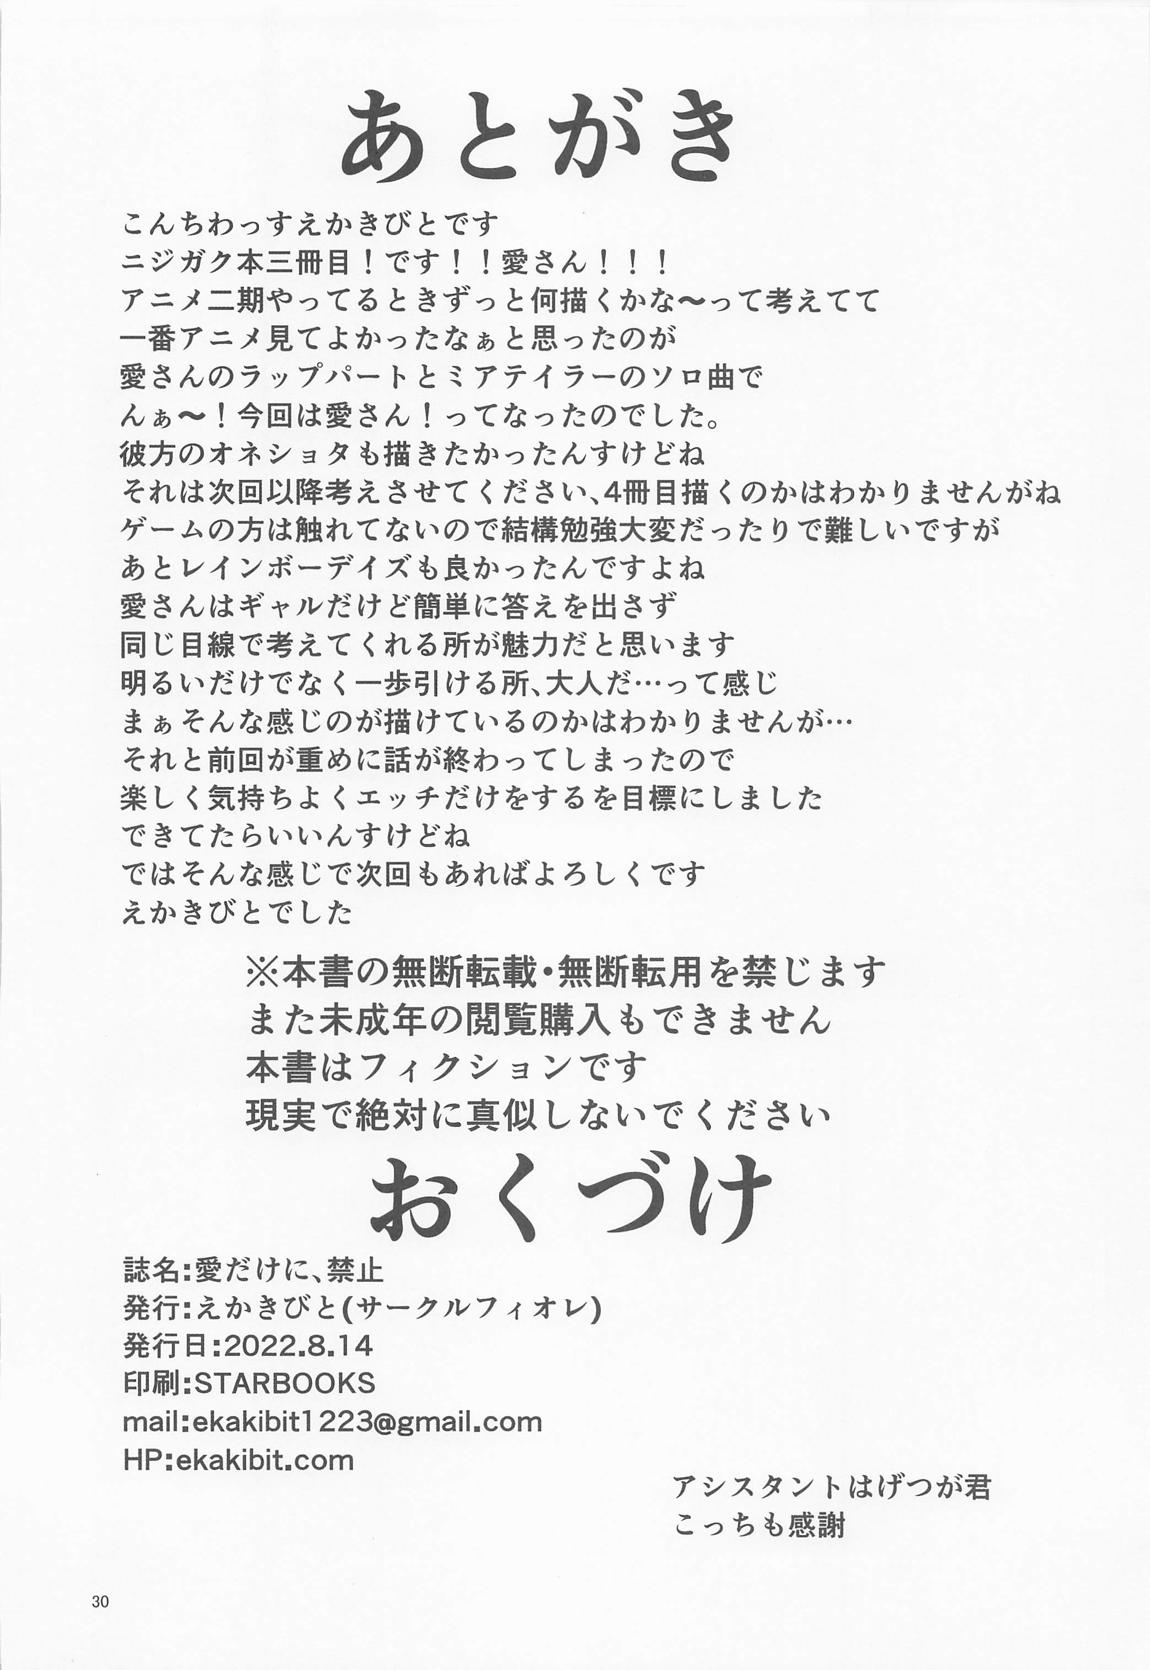 あとがき
こんちわっすえかきびとです
ニジガク本三冊目！です！！愛さん！！！
アニメ二期やってるときずっと何描くかな〜って考えてて
一番アニメ見てよかったなぁと思ったのが
愛さんのラップパートとミアテイラーのソロ曲で
んぁ〜！今回は愛さん！ってなったのでした。
彼方のオネショタも描きたかったんすけどね
それは次回以降考えさせてください、4冊目描くのかはわかりませんがね
ゲームの方は触れてないので結構勉強大変だったりで難しいですが
あとレインボーデイズも良かったんですよね
愛さんはギャルだけど簡単に答えを出さず
同じ目線で考えてくれる所が魅力だと思います
明るいだけでなく一歩引ける所、大人だ…って感じ
まぁそんな感じのが描けているのかはわかりませんが…
それと前回が重めに話が終わってしまったので
楽しく気持ちよくエッチだけをするを目標にしました
できてたらいいんすけどね
ではそんな感じで次回もあればよろしくです
えかきびとでした
※本書の無断転載・無断転用を禁じます
また未成年の閲覧購入もできません
本書はフィクションです
現実で絶対に真似しないでください
おくづけ
誌名:愛だけに、禁止
発行:えかきびと(サークルフィオレ)
発行日:2022.8.14
印刷:STARBOOKS
mail:ekakibit1223@gmail.com
HP:ekakibit.com
アシスタントはげつが君
こっちも感謝
30